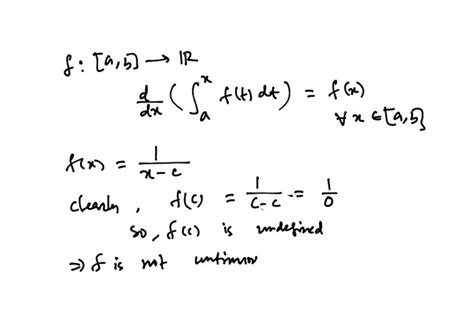 f : [a,b] → ℝ
d/dx ( ∫_a^x f(t) dt ) = f(x)
∀ x ∈ [a,b]
f(x) = 1/(x-c)
clearly, f(c) = 1/(c-c) = 1/0
so, f(c) is undefined
⇒ f is not